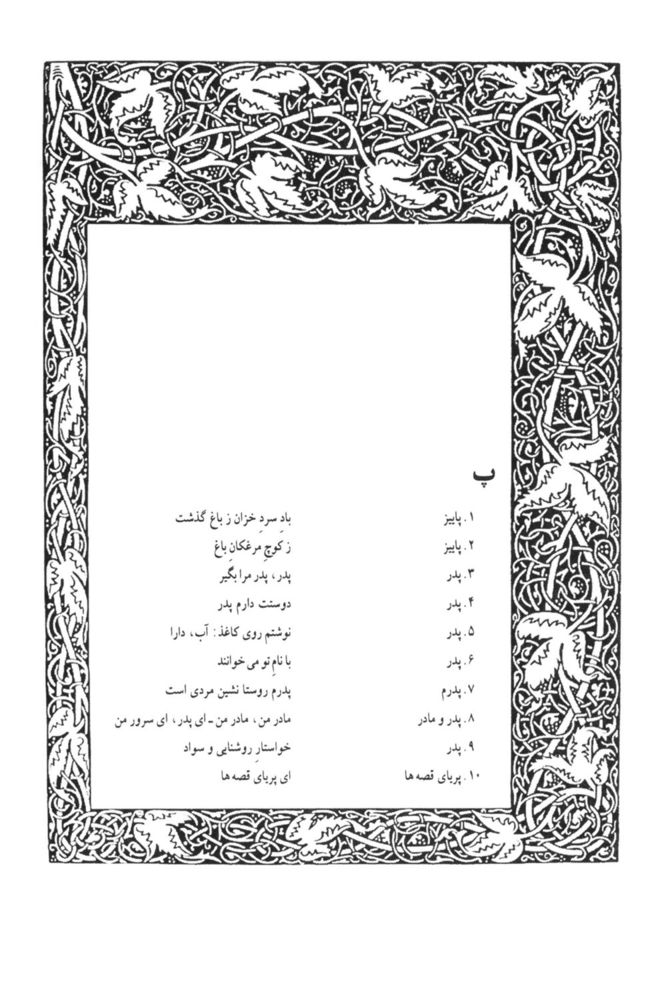 پ
۱. پاییز بادِ سردِ خزان ز باغ گذشت
۲. پاییز ز کوچِ مرغکانِ باغ
۳. پدر پدر، پدر مرا بگیر
۴. پدر دوستت دارم پدر
۵. پدر نوشتم روی کاغذ: آب، دارا
۶. پدر با نامِ تو می خوانند
۷. پدرم پدرم روستا نشین مردی است
۸. پدر و مادر مادر من، مادر من ـ ای پدر، ای سرور من
۹. پدر خواستارِ روشنایی و سواد
۱۰. پریای قصه ها ای پریای قصه ها